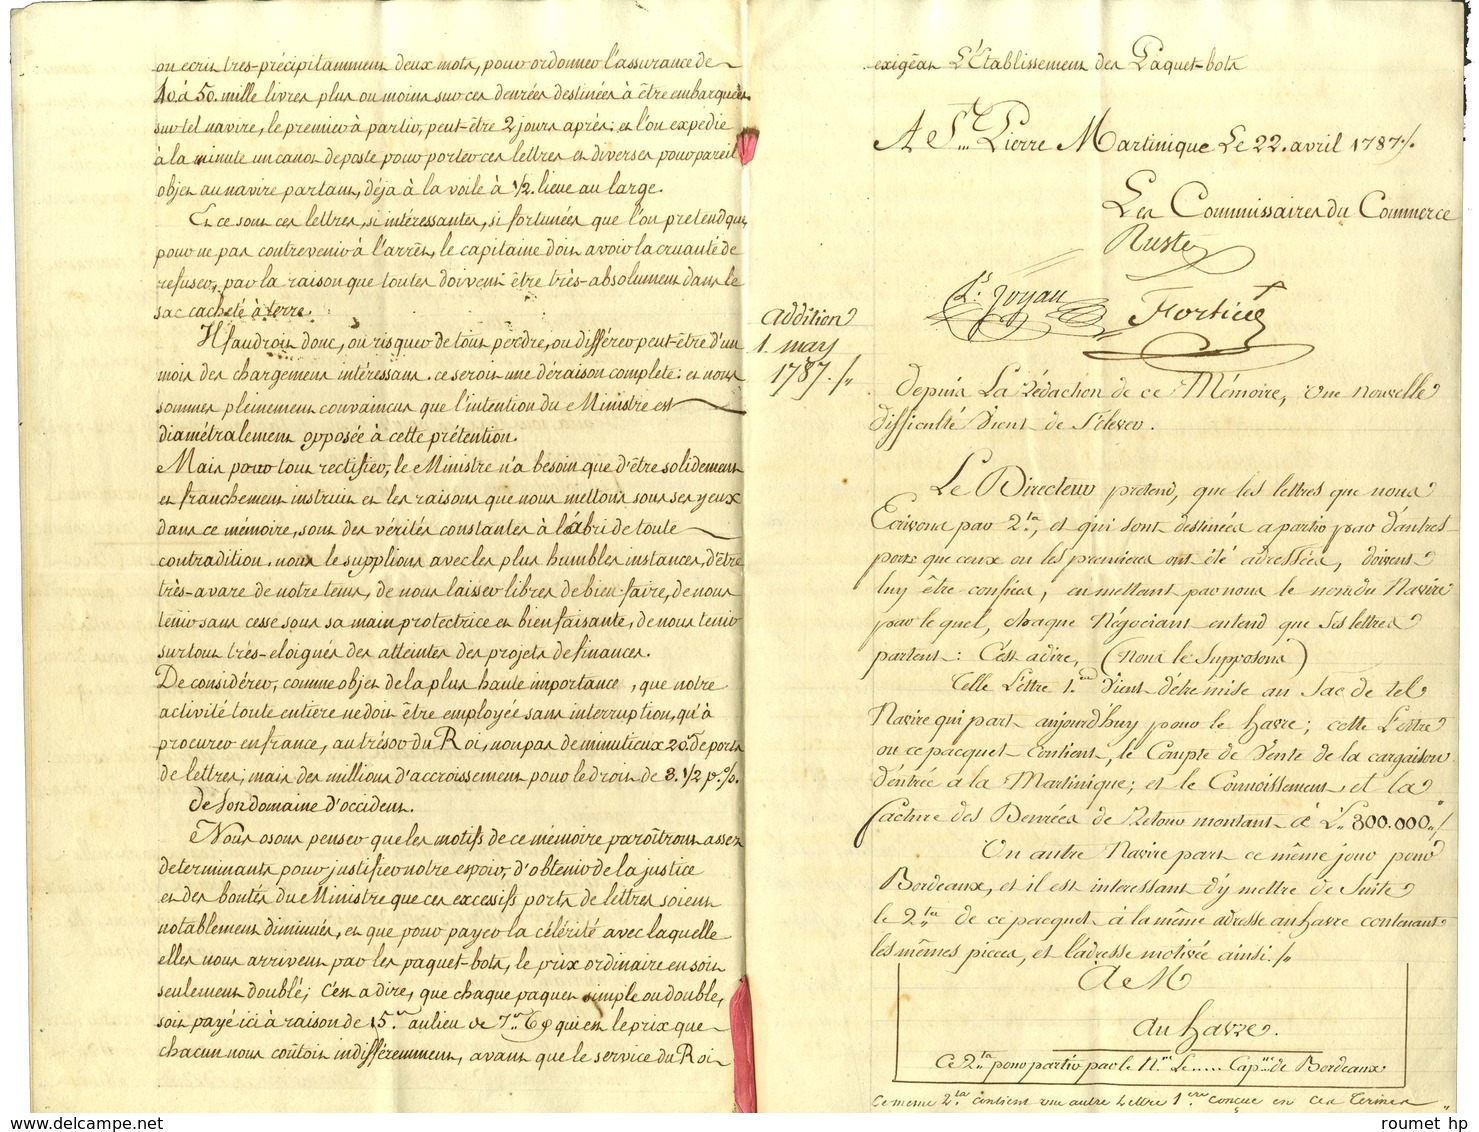 ou ecrit très-précipitamment deux mots, pour ordonner l'assurance de
40. à 50. mille livres plus ou moins sur ces denrées destinées à être embarquées
sur tel navire, le premier à partir, peut-être 2 jours après; et l'on expédie
à la minute un canot de poste pour porter ces lettres et diverses pour pareil
objet au navire partant, déja à la voile à 1/2. lieue au large.
Et ce sont ces lettres, si intéressantes, si fortunées que l'on pretend que,
pour ne pas contrevenir à l'arrêt, le capitaine doit avoir la cruauté de
refuser, par la raison que toutes doivent être très-absolument dans le
sac cacheté à terre.
Il faudroit donc, ou risquer de tout perdre, ou différer peut-être d'un
mois des chargemens intéressans. ce seroit une déraison complete: et nous
sommes pleinement convaincus que l'intention du Ministre est
diamétralement opposée à cette prétention.
Mais pour tout rectifier, le Ministre n'a besoin que d'être solidement
et franchement instruit et les raisons que nous mettons sous ses yeux
dans ce mémoire, sont des vérités constantes à l'abri de toute
contradition. nous le supplions avec les plus humbles instances, d'être
très-avare de notre tems, de nous laisser libres de bien faire, de nous
tenir sans cesse sous sa main protectrice et bienfaisante, de nous tenir
surtout très-eloignés des atteintes des projets de finances.
De considérer, comme objet de la plus haute importance, que notre
activité toute entiere ne doit être employée sans interruption, qu'à
procurer en france, au trésor du Roi, non pas de minutieux 20s. de ports
de lettres; mais des millions d'accroissement pour le droit de 3. 1/2 p.%.
de son domaine d'occident.
Nous osons penser que les motifs de ce mémoire paroîtront assez
determinants pour justifier notre espoir, d'obtenir de la justice
et des bontés du Ministre que ces excessifs ports de lettres soient
notablement diminués, et que pour payer la célérité avec laquelle
elles nous arrivent par les paquet-bots, le prix ordinaire en soit
seulement doublé; c'est a dire, que chaque paquet simple ou double,
soit payé ici à raison de 15.s au lieu de 7.s 6d qui est le prix que
chacun nous coûtoit indifféremment, avant que le service du Roi
exigeât L'Etablissement des Paquet-bots
A St. Pierre Martinique Le 22. avril 1787./.
Les Commissaires du Commerce
Ruste
Fortier
addition
1. may
1787./.
Depuis La rédaction de ce Mémoire, Une nouvelle
difficulté Vient de s'élever.
Le Directeur prétend, que les lettres que nous
Ecrivons par 2.ta, et qui sont destinées a partir par d'autres
ports que ceux ou les premieres ont été adressées, doivent
luy être confiées, en mettant par nous le nom du Navire
par le quel, chaque Négociant entend que Ses lettres
partent: C'est a dire, (Nous le Supposons)
Telle Lettre 1.ere Vient d'être mise au Sac de tel
Navire qui part aujourd'huy pour le havre; cette Lettre
ou ce pacquet Contient, le Compte de Vente de la cargaison
d'entrée à la Martinique; et le Connoissement et la
facture des Denrées de Retour montant à L. 300.000./
Un autre Navire part ce même jour pour
Bordeaux, et il est interessant d'y mettre de Suite
le 2.ta de ce pacquet à la même adresse au havre contenant
les mêmes pieces, et l'adresse motivée ainsi./.
A M
au havre.
Ce 2.ta pour partir par le N.re Le..... Cap.ne de Bordeaux
Ce meme 2.ta Contient une autre Lettre 1.ere conçue en ces termes
roumet hp